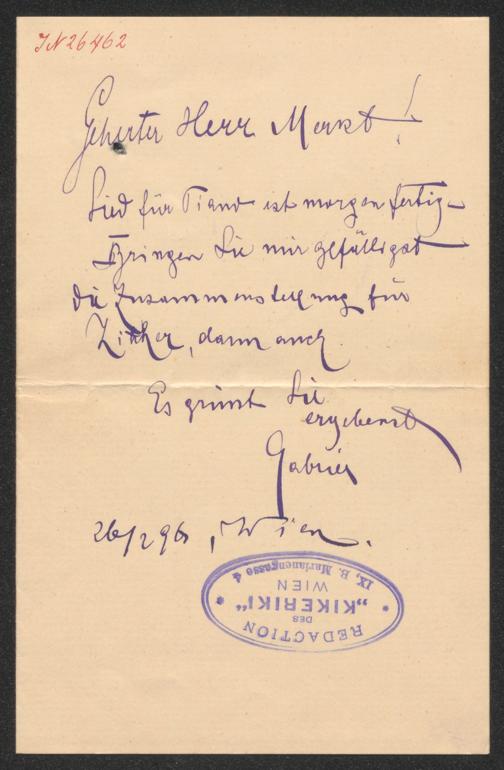 IN 26462
Geherter Herr Merkt!
Lied für Piano ist morgen fertig
Bringen Sie mir gefälligst
die Zusammenstellung für
Zither, dann auch
Es grüsst Sie
ergebenst
Gabriel
26/2 96, Wien.
REDACTION
DES
„KIKERIKI“
WIEN
IX, B. Mariannengasse 4